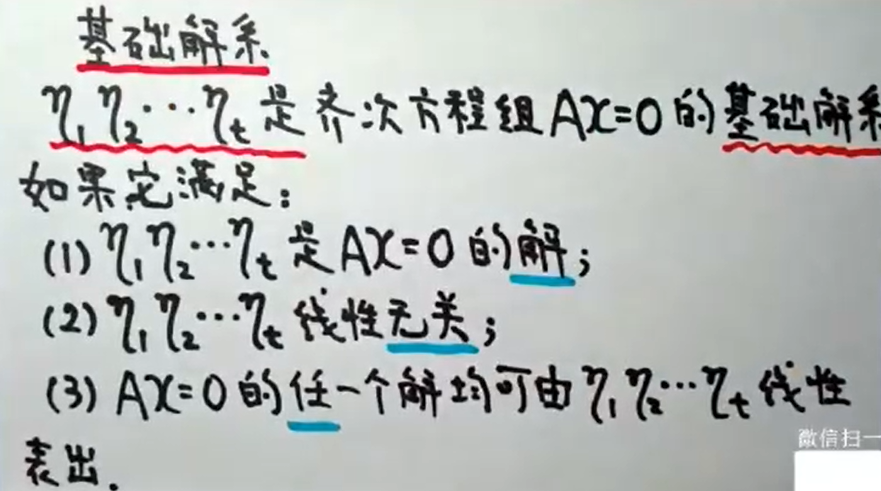 基础解系
η₁ η₂ … ηₜ 是齐次方程组 AX=0 的基础解系
如果它满足：
(1) η₁ η₂ … ηₜ 是 AX=0 的解；
(2) η₁ η₂ … ηₜ 线性无关；
(3) AX=0 的任一个解均可由 η₁ η₂ … ηₜ 线性
表出.
微信扫一